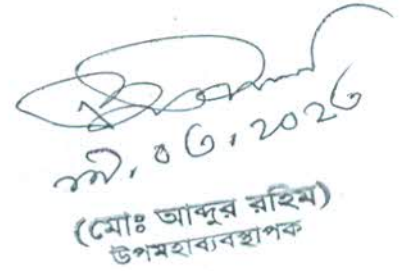 ০৬.২০২৬
(মোঃ আব্দুর রহিম)
উপমহাব্যবস্থাপক